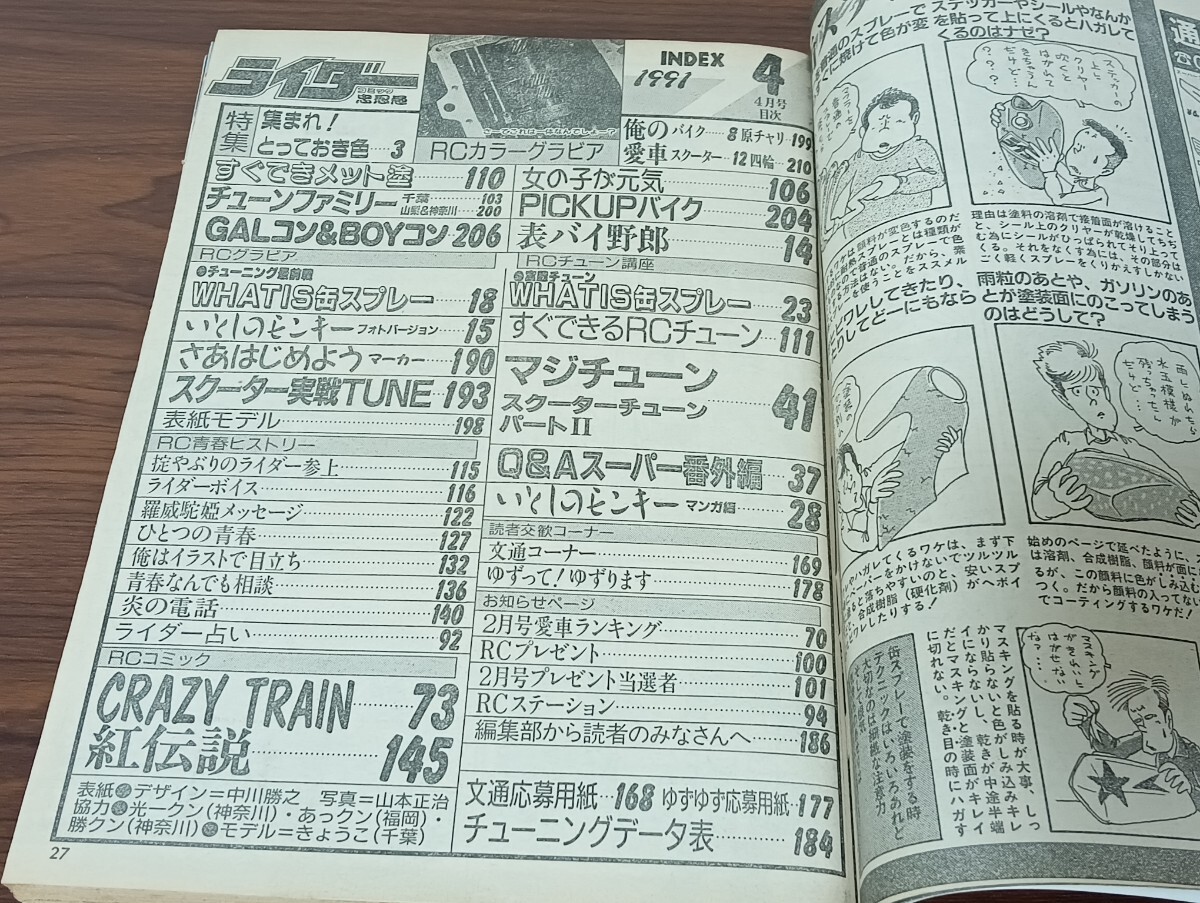 ライダー
コミック
忠忍愚
さーてこれは一体なんでしょー?
INDEX
1991
4
4月号
目次
特集
集まれ!
とっておき色…3
RCカラーグラビア
俺の愛車
バイク……8
原チャリ…199
スクーター…12
四輪…210
すぐできメット塗…110
チューンファミリー
千葉…103
山梨&神奈川…200
GALコン&BOYコン 206
女の子が元気…106
PICKUPバイク…204
表バイ野郎…14
RCグラビア
チューニング最前戦
WHATIS缶スプレー…18
いとしのモンキー フォトバージョン…15
さあはじめよう マーカー…190
スクーター実戦TUNE…193
表紙モデル…198
RC青春ヒストリー
掟やぶりのライダー参上…115
ライダーボイス…116
羅威駝婭メッセージ…122
ひとつの青春…127
俺はイラストで目立ち…132
青春なんでも相談…136
炎の電話…140
ライダー占い…92
RCコミック
CRAZY TRAIN…73
紅伝説…145
表紙 デザイン=中川勝之 写真=山本正治
協力 光一クン(神奈川)・あっクン(福岡)・
勝クン(神奈川) モデル=きょうこ(千葉)
27
RCチューン講座
WHATIS缶スプレー…23
すぐできるRCチューン…111
マジチューン
スクーターチューン
パートII
41
Q&Aスーパー番外編…37
いとしのモンキー マンガ編…28
読者交歓コーナー
文通コーナー…169
ゆずって!ゆずります…178
お知らせページ
2月号愛車ランキング…70
RCプレゼント…100
2月号プレゼント当選者…101
RCステーション…94
編集部から読者のみなさんへ…186
文通応募用紙…168
ゆずゆず応募用紙…177
チューニングデータ表…184
ステッカーやシールやなんか
を貼って上にくるとハガレて
くるのはナゼ?
普通のスプレーで
に焼けて色が変
ステッカーの
上に
クリヤー
吹くと
はがれて
きちゃうん
だけど…
?
理由は塗料の溶剤で接着面が溶けること
と、シール上のクリヤーが乾燥してちぢ
む為にシールがひっぱられてそり上がっ
てくる。それをなくす為には、その部分は
ごく軽くスプレーをくりかえすしかない
雨粒のあとや、ガソリンのあ
とが塗装面にのこってしまう
のはどうして?
雨にぬれたら
水玉模様が
残っちゃっ
たけど…
始めのページで延べたように、
は溶剤、合成樹脂、顔料が面に
るが、この顔料に色がしみ込む
つく。だから顔料の入ってない
でコーティングするワケだ!
ヒワレしてきたり、
うしてどーにもなら
やハガレてくるワケは、まず下
ーパーをかけないでツルツル
ると落ちやすいのと、安いスプ
合成樹脂(硬化剤)がヘボイ
ワレしたりする!
缶スプレーで塗装をする時
テクニックはいろいろあれど
大切なのは細かな注意力
マスキングを貼る時が大事、しっ
かり貼らないと色がしみ込みキレ
イにならないし、乾きが中途半端
だとマスキングと塗装面がキレイ
に切れない。乾き目の時にハガす
マスキング
がきれいに
はがせ
ねぇな…